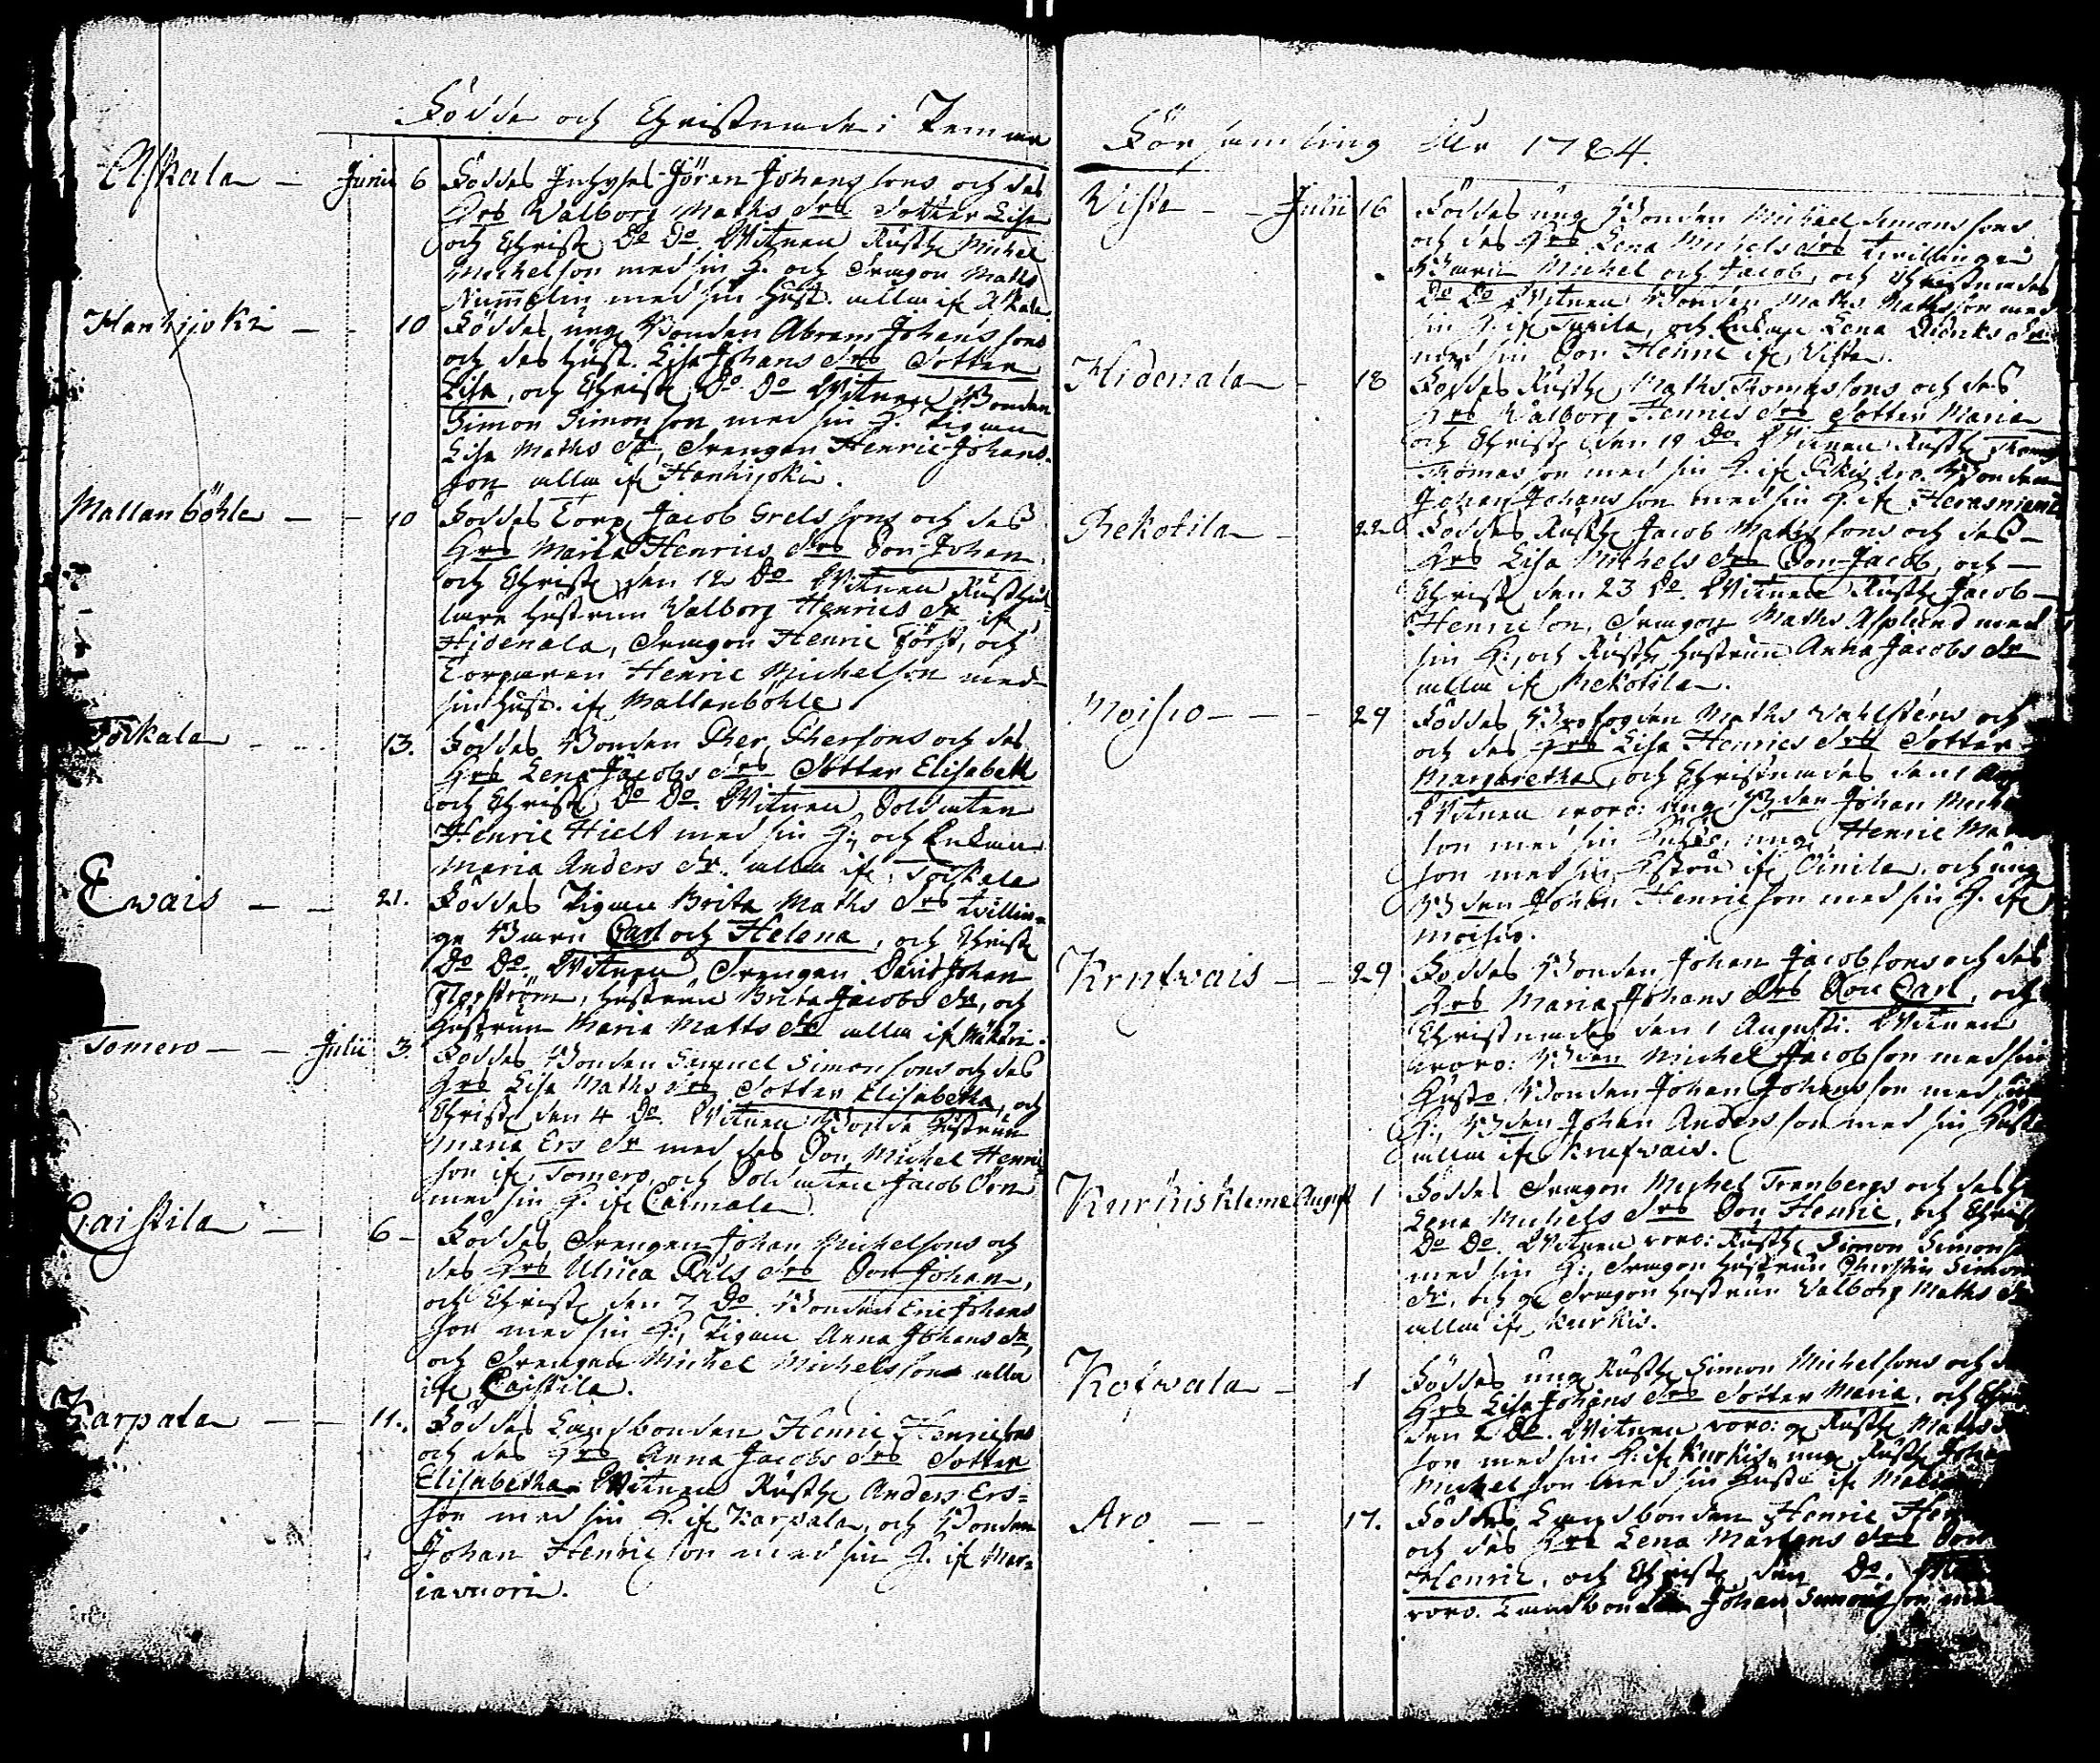 Födde och Christnade i Pemars
Askala – Junii 6 Föddes Inhyses Jöran Johanssons och des
Hrs Walborg Maths drs Dotter Lisa
och Christ. Do Do. Witnen Rusth. Michel
Michelson med sin H. och Dragon Maths
Nummelin med sin Hust. alla if. Askala.
Hankijoki – – 10 Föddes ung Bonden Abram Johanssons
och des Hust. Lisa Johans drs Dotter
Lisa, och Christ. Do Do Witnen Bonden
Simon Simonson med sin H. Pigan
Lisa Maths dr, Drengen Henric Johans-
son alla if. Hankijoki.
Mallanböhle – – 10 Föddes Torp. Jacob Grelssons och des
Hrs Maria Henrics drs Son Johan
och Christ. den 12 Do Witnen Rusthål-
lare Hustrun Walborg Henrics dr if.
Hidenala, Dragon Henric Först, och
Torparen Henric Michelson med
sin Hust. if. Mallanböhle.
Toskala – – 13. Föddes Bonden Pher Phersons och des
Hrs Lena Jacobs drs Dotter Elisabeth
och Christ. Do Do. Witnen Soldaten
Henric Hielt med sin H. och Enkan
Maria Anders dr. alla if. Toskala
Ewais – – 21. Föddes Pigan Brita Maths drs twillin-
ge Barn Carl och Helena, och Christ.
Do Do. Witnen Drengen David Johan
Hustrun Brita Jacobs dr, och
Hustrun Maria Matts dr alla if.
Tomero – – Julii 3. Föddes Bonden Samuel Simonsons och des
Hrs Lisa Maths drs Dotter Elisabetha, och
Christ. den 4 Do. Witnen Bonde Hustrun
Maria Ers dr med des Son Michel Henric-
son if. Tomero, och Soldaten Jacob Örn
med sin H. if. Carmala
Caistila – 6 – Föddes Drengen Johan Michelsons och
des Hrs Ulrica Påls drs Son Johan,
och Christ. den 7 Do. Bonden Eric Johans
son med sin H., Pigan Anna Johans dr,
och Drengen Michel Michelsson alla
if. Caistila.
Karpala – – 11. Föddes Landbonden Henric Henricsons
och des Hrs Anna Jacobs drs Dotter
Elisabetha. Witnen Rusth. Anders Ers-
son med sin H. if. Karpala, och Bonden
Johan Henricson med sin H. if. Mer-
iavuori.
Församling År 1784.
Wista – – Julii 16 Föddes ung Bonden Michael Simonssons
och des Hrs Lena Michels drs twillinge
Barn Michel och Jacob, och Christnades
Do Do Witnen Bonden Maths Mathsson med
sin H. if. och Enkan Lena
med sin Son Henric if. Wista.
Hidenala – 18 Föddes Rusth. Maths Thomassons och des
Hrs Walborg Henrics drs Dotter Maria
och Christ. den 19 Do. Witnen Rusth. Thomas
Thomasson med sin H. if. Bonden
Johan Johansson med sin H. if. Herasniemi
Rekotila – 22 Föddes Rusth. Jacob Mathssons och des –
Hrs Lisa Michels drs Son Jacob, och –
Christ. den 23 Do. Witnen Rusth. Jacob –
Henricson, Dragon Maths Asplund med
sin H., och Rusth. Hustrun Anna Jacobs dr
alla if. Rekotila.
Moisio – – – 29 Föddes Brofogden Maths Wahlstens och
och des Hrs Lisa Henrics drs Dotter
Margaretha, och Christnades den 1 Aug
Witnen woro: ung Bden Johan
son med sin ung Henric
son med sin Hstru if. Oinila, och ung
Bden Johan Henricson med sin H. if.
Moisio.
Krufwais – – 29 Föddes Bonden Johan Jacobsons och des
Hrs Maria Johans drs Son Carl, och
Christnades den 1 Augusti. Witnen
woro: Bden Michel Jacobson med sin
Husto, Bonden Johan Johansson med sin
H., Bden Johan Andersson med sin Hust
alla if. Krufwais.
Kurkis kleme August 1 Föddes Dragon Michel Trenbergs och des
Lena Michels drs Son Henric, och Christ
Do Do. Witnen woro: Rusth. Simon Simons
med sin H., Dragon Hustrun Christin Simons
dr, och Dragon Hustrun Walborg Maths dr
alla if. Kurkis.
Kofwala – 1 Föddes ung Rusth. Simon Michelsons och
Hrs Lisa Johans drs Dotter Maria, och
den 2 Do. Witnen woro: Rusth. Maths
son med sin H. if. Kurkis, ung Rusth. Johan
Michelson med sin Husto if.
Aro – – 17. Föddes Landbonden Henric
och des Hrs Lena Martens drs Son
Henric, och Christ. den Do.
woro. Landbonden Johan Simonsson